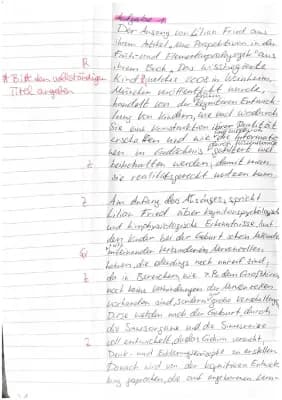 Aufgabe 1
Der Auszug von Lilian Fried aus
ihrem Artikel, "Neue Perspektiven in der
Früh- und Elementarpädagogik" aus
ihrem Buch "Das wissbegierige
R
Kind", welches 2008 in Weinheim,
* Bitte den vollständigen
München veröffentlicht wurde,
Titel angeben
handelt von der kognitiven Entwick-
lung von Kindern, wie und wodurch
Sie eine Konstruktion ihrer Realität
erschaffen und wie die Informationen
im Gedächtnis gespeichert und
Z
beibehalten werden, damit man
sie realitätsgerecht nutzen kann.
Z
Am Anfang des Auszuges, spricht
Lilian Fried über kognitionspsychologische
und hirnphysiologische Erkenntnisse, laut
den Kinder bei der Geburt schon
Gr
miteinander verbundene Nervenzellen
haben, die allerdings noch unreif sind,
Z
da in Bereichen, wie z.B. dem Großhirn
noch keine Verbindungen der Nervenzellen
vorhanden sind, sondern große
Diese werden nach der Geburt, durch
die Sinnesorgane und die Sinnesreize
Z
voll entwickelt, da das Gehirn versucht,
Denk- und Erklärungs zu erstellen.
Danach wird von der kognitiven Entwick-
lung gesprochen, die auf angeborenen Lern-